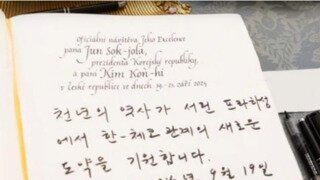 Oficiální návštěva Jeho Excelence
pana Jun Sok-jola,
prezidenta Korejské republiky,
a paní Kim Kon-hi
v České republice ve dnech 19.-21. září
천년의 역사가 서린 프라하성
에서 한-체코 관계의 새로운
도약을 기원합니다.
9월 19일